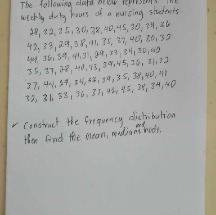 The following data below represents the
weekly duty hours of a nursing students
28, 32, 35, 30, 38, 40, 45, 30, 29, 36
42, 33, 29, 38, 41, 35, 37, 40, 30, 32
44, 36, 39, 41, 31, 29, 33, 34, 30, 42
35, 37, 28, 40, 43, 39, 45, 36, 31, 32
37, 44, 34, 38, 39, 35, 38, 40, 41
32, 31, 33, 36, 37, 42, 45, 28, 39, 40
Construct the frequency distribution
then find the mean, median and mode.